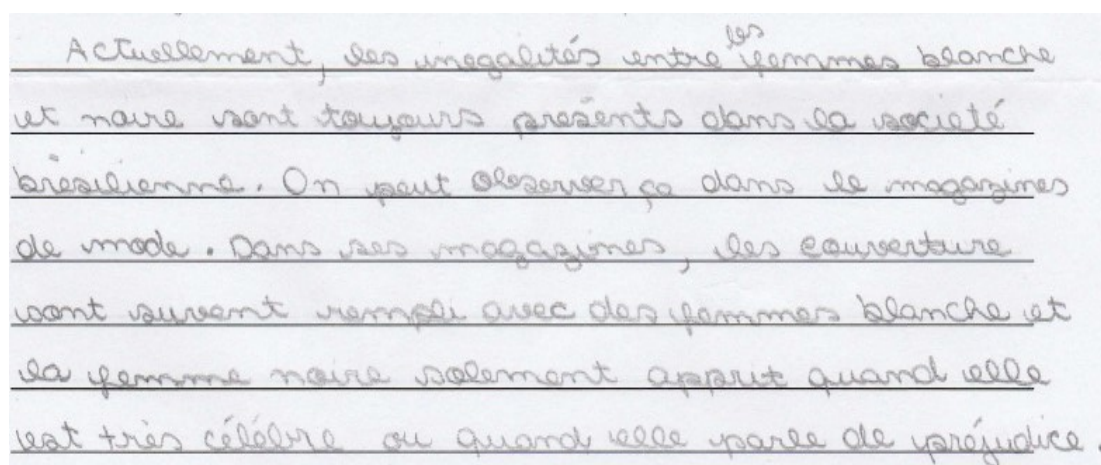 Actuellement, les inegalités entre les femmes blanche
et noire sont toujours présents dans la societé
bresilienne. On peut observer ça dans le magazines
de mode. Dans ses magazines, les couverture
sont suvent rempli avec des femmes blanche et
la femme noire solement apprut quand elle
est très célébre ou quand elle parle de préjudice.